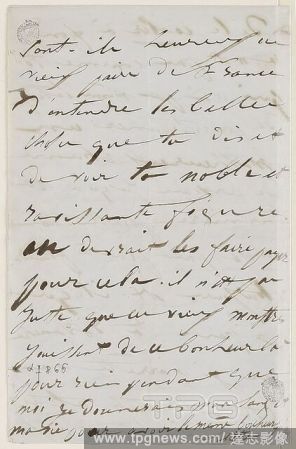 sont-ils heureux ces
vieux pairs de France
d'entendre les belles
choses que tu dis et
de voir ta noble et
ravissante figure.
on devrait les faire payer
pour cela. il n'est pas
juste que ces vieux monstres
jouissent de ce bonheur là
pour rien pendant que
moi je donnerais
ma vie pour
1866
TPG
www.tpgnews.com/達志影像